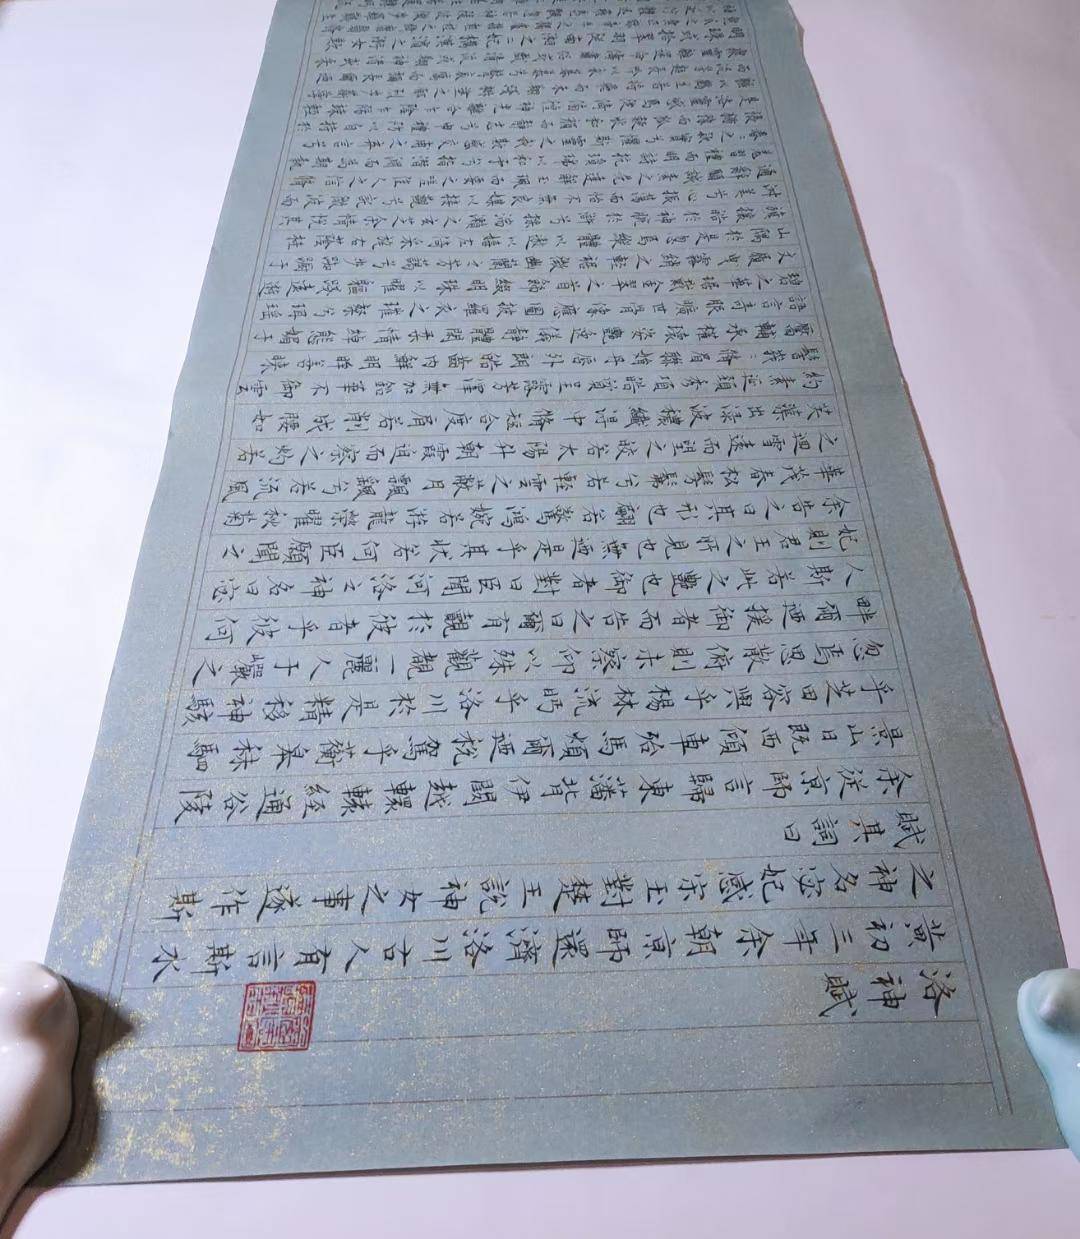 洛神賦
黃初三年余朝京師還濟洛川古人有言斯水
之神名宓妃感宋玉對楚王說神女之事遂作斯
賦其詞曰
余從京師言歸東藩背伊闕越轘轅經通谷陵
景山日既西傾車殆馬煩爾迺稅駕乎蘅皋秣駟
乎芝田容與乎楊林流眄乎洛川於是精移神駭
忽焉思散俯則未察仰以殊觀覩一麗人于巖之
畔爾迺援御者而告之曰爾有覿於彼者乎彼何
人斯若此之艷也御者對曰臣聞河洛之神名曰宓
妃則君王之所見也無迺是乎其狀若何臣願聞之
余告之曰其形也翩若驚鴻婉若游龍榮曜秋菊
華茂春松髣髴兮若輕雲之蔽月飄颻兮若流風
之迴雪遠而望之皎若太陽升朝霞迫而察之灼若
芙蕖出淥波穠纖得中脩短合度肩若削成腰如
約素延頸秀項皓質呈露芳澤無加鉛華不御雲
髻峩〻脩眉聯娟丹唇外朗皓齒內鮮明眸善睞
靨輔承權瓌姿艷逸儀靜體閑柔情綽態媚于
語言奇服曠世骨像應圖披羅衣之璀粲兮珥瑤
碧之華琚戴金翠之首飾綴明珠以曜軀踐遠遊
文履曳霧綃之輕裾微幽蘭之芳藹兮步踟躕于
山隅於是忽焉縱體以遨以嬉左倚采旄右蔭桂
旗攘皓腕於神滸兮採湍瀨之玄芝余情悅其
淑美兮心振蕩而不怡無良媒以接懽兮託微波而
通辭願誠素之先達解玉珮而要之嗟佳人之信脩
羌習禮而明詩抗瓊珶以和予兮指潛淵而為期執
眷〻之款實兮懼斯靈之我欺感交甫之棄言兮
悵猶豫而狐疑收和顏而靜志兮申禮防以自持於
是洛靈感焉徙倚彷徨神光離合乍陰乍陽竦輕